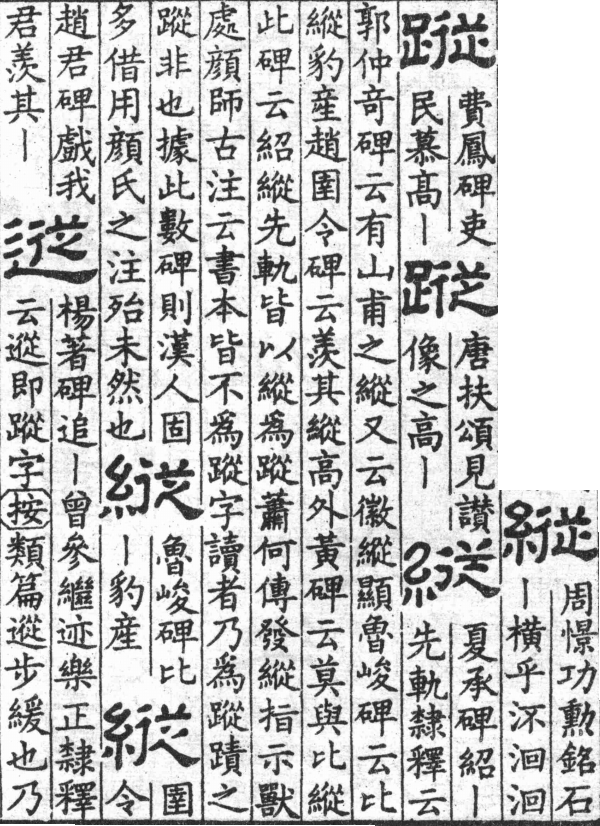 縱
周憬功勳銘石
｜橫乎泝洄洄
蹤
費鳳碑吏
民慕高｜
蹤
唐扶頌見讃
像之高｜
縱
夏承碑紹｜
先軌隸釋云
郭仲竒碑云有山甫之縱又云徽縱顯魯峻碑云比
縱豹産趙圉令碑云羨其縱高外黃碑云莫與比縱
此碑云紹縱先軌皆以縱為蹤蕭何傳發縱指示獸
處顔師古注云書本皆不為蹤字讀者乃為蹤蹟之
蹤非也據此數碑則漢人固
多借用顔氏之注殆未然也
縱
魯峻碑比
｜豹産
縱
圉
令
趙君碑戲我
君羨其｜
楊著碑追｜曾參繼迹樂正隸釋
云即蹤字按類篇步緩也乃